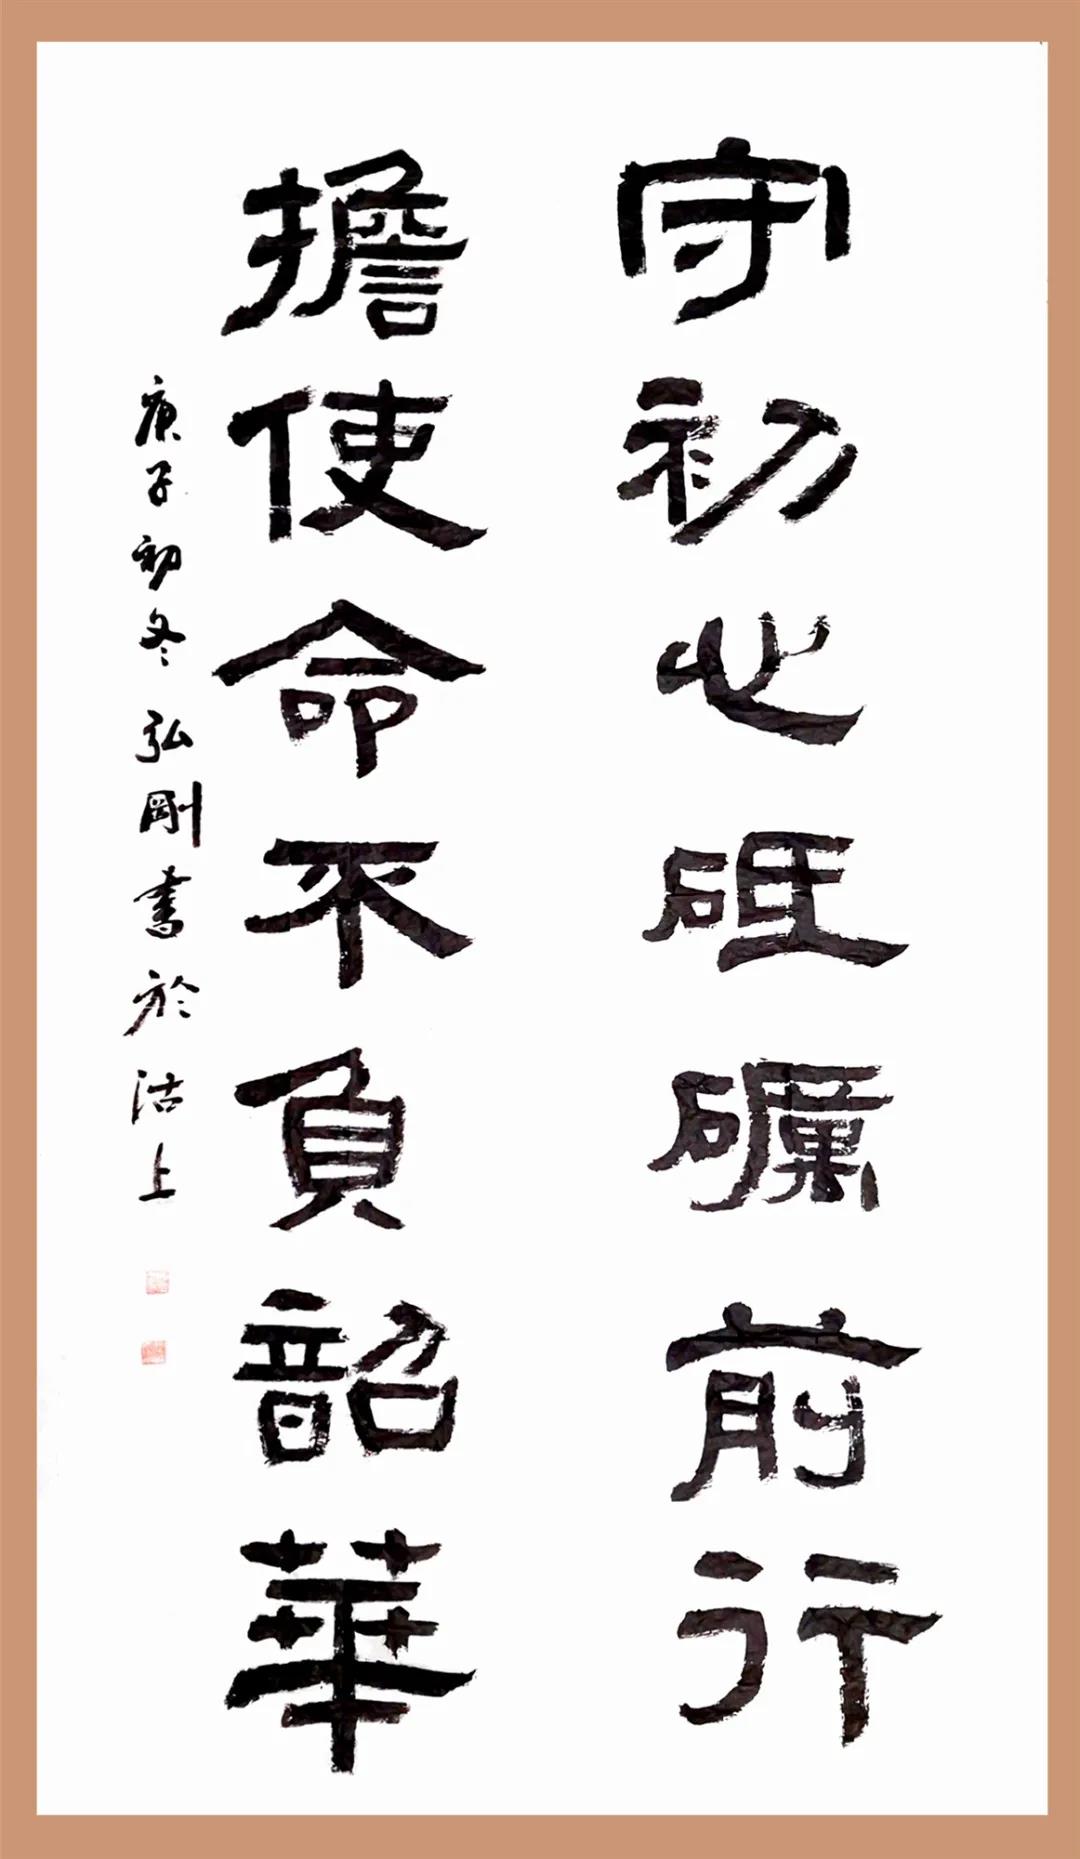 守初心砥礪前行
擔使命不負韶華
庚子初冬弘剛書於沽上